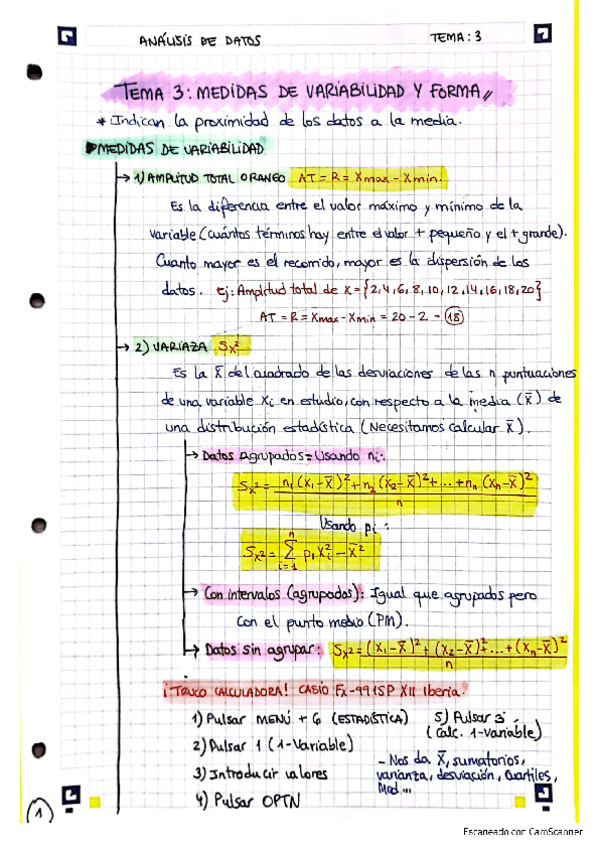 ANÁLISIS DE DATOS
TEMA: 3
TEMA 3: MEDIDAS DE VARIABILIDAD Y FORMA //
* Indican la proximidad de los datos a la media.
MEDIDAS DE VARIABILIDAD
→ 1) AMPLITUD TOTAL O RANGO AT = R = Xmax - Xmin.
Es la diferencia entre el valor máximo y mínimo de la
variable (cuántos términos hay entre el valor + pequeño y el + grande).
Cuanto mayor es el recorrido, mayor es la dispersión de los
datos. ej: Amplitud total de X = {2,4,6,8,10,12,14,16,18,20}
AT = R = Xmax - Xmin = 20 - 2 = 18
→ 2) VARIAZA Sx²
Es la X̄ del cuadrado de las desviaciones de las n puntuaciones
de una variable Xi en estudio, con respecto a la media (X̄) de
una distribución estadística (Necesitamos calcular X̄).
→ Datos agrupados = Usando ni:
Sx² = n₁(x₁-X̄)²+n₂(x₂-X̄)²+...+nₙ(xₙ-X̄)² / n
Usando pi:
Sx² = Σ i=1 n pi xi² - X̄²
→ Con intervalos (agrupados): Igual que agrupados pero
con el punto medio (PM).
→ Datos sin agrupar: Sx² = (x₁-X̄)²+(x₂-X̄)²+...+(xₙ-X̄)² / n
¡TRUCO CALCULADORA! CASIO Fx-991SP XII Iberia.
1) Pulsar MENÚ + 6 (ESTADÍSTICA)
2) Pulsar 1 (1-Variable)
3) Introducir valores
4) Pulsar OPTN
5) Pulsar 3
(Calc. 1-Variable)
- Nos da X̄, sumatorios,
varianza, desviación, Cuartiles,
Med...
1
Escaneado con CamScanner